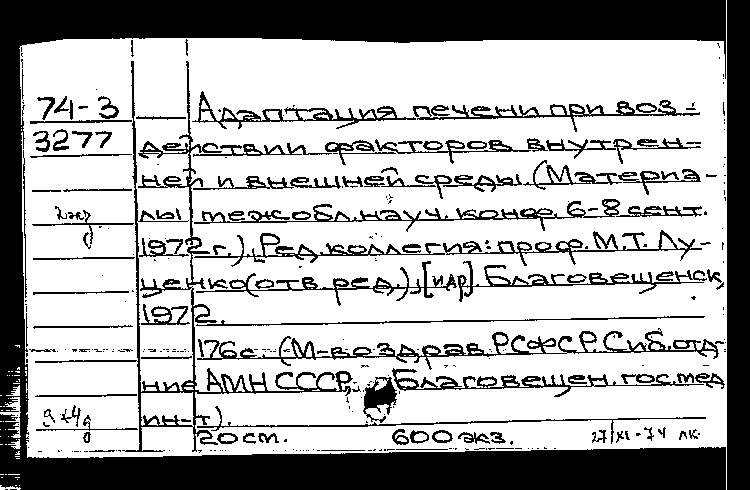 74-3 Адаптация печени при воз-
3277 действии факторов внутрен-
ней и внешней среды. (Материа-
2 экз лы межобл. науч. конф. 6-8 сент.
1972 г.). [Ред. коллегия: проф. М.Т. Лу-
ценко (отв. ред.), [и др]. Благовещенск,
1972.
176 с. (М-во здрав. РСФСР. Сиб. отд-
ние АМН СССР. Благовещен. гос. мед
ин-т).
20 см. 600 экз. 27/XI-74 лк.